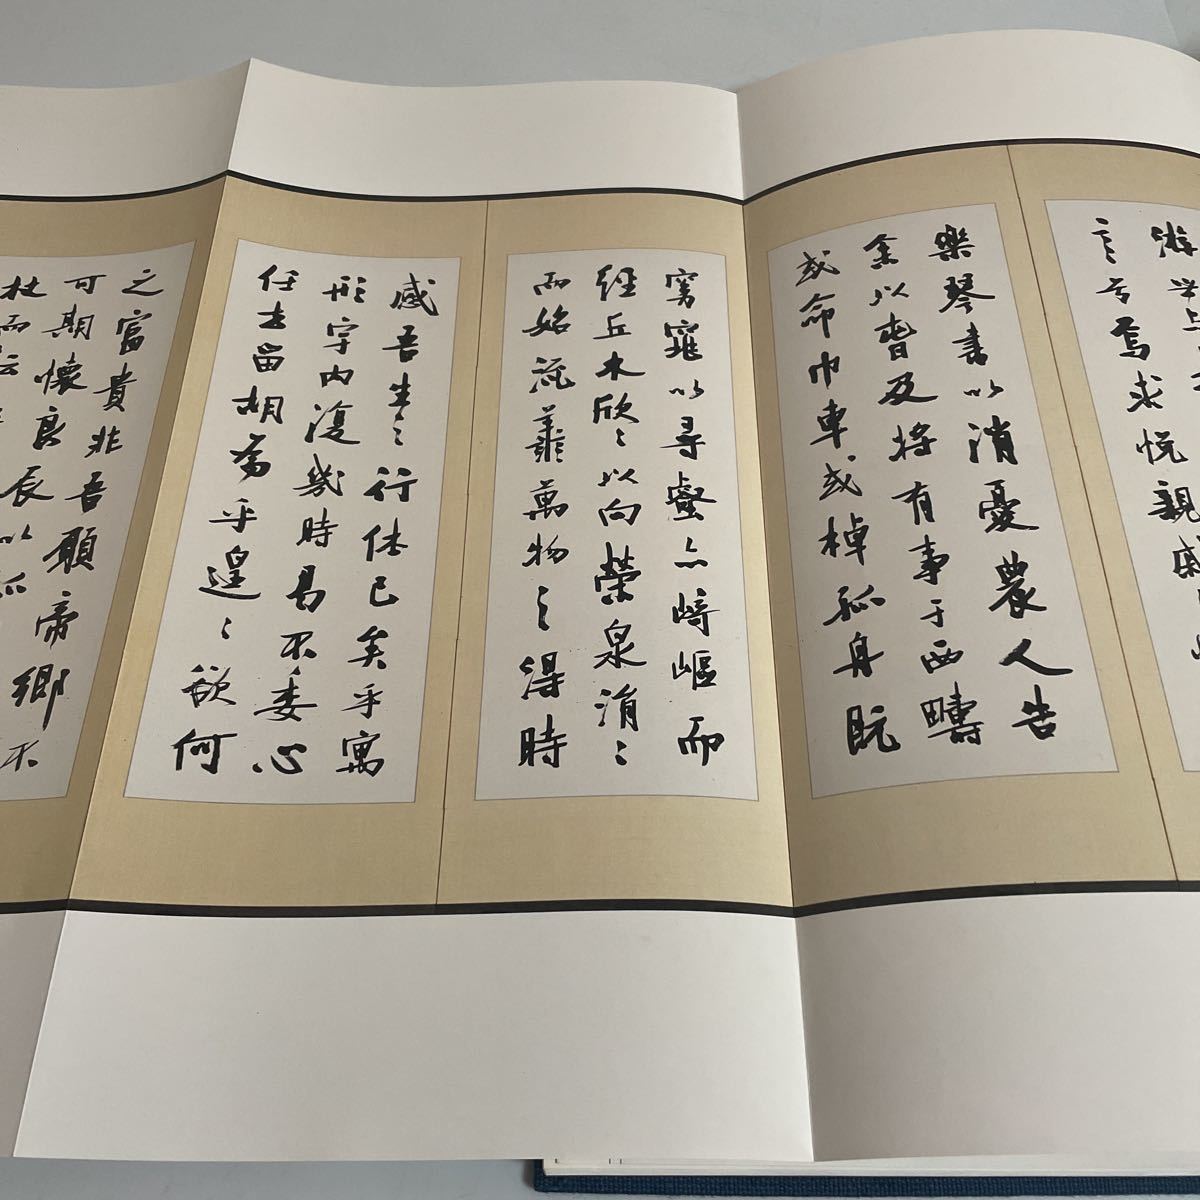 游
言兮焉求悦親戚
樂琴書以消憂農人告
余以春及将有事于西疇
或命巾車或棹孤舟既
窈窕以尋壑亦崎嶇而
經丘木欣〻以向榮泉涓〻
而始流羨萬物之得時
感吾生之行休已矣乎寓
形宇内復幾時曷不委心
任去留胡為乎遑〻欲何
之富貴非吾願帝鄉不
可期懷良辰以孤
杖而耘